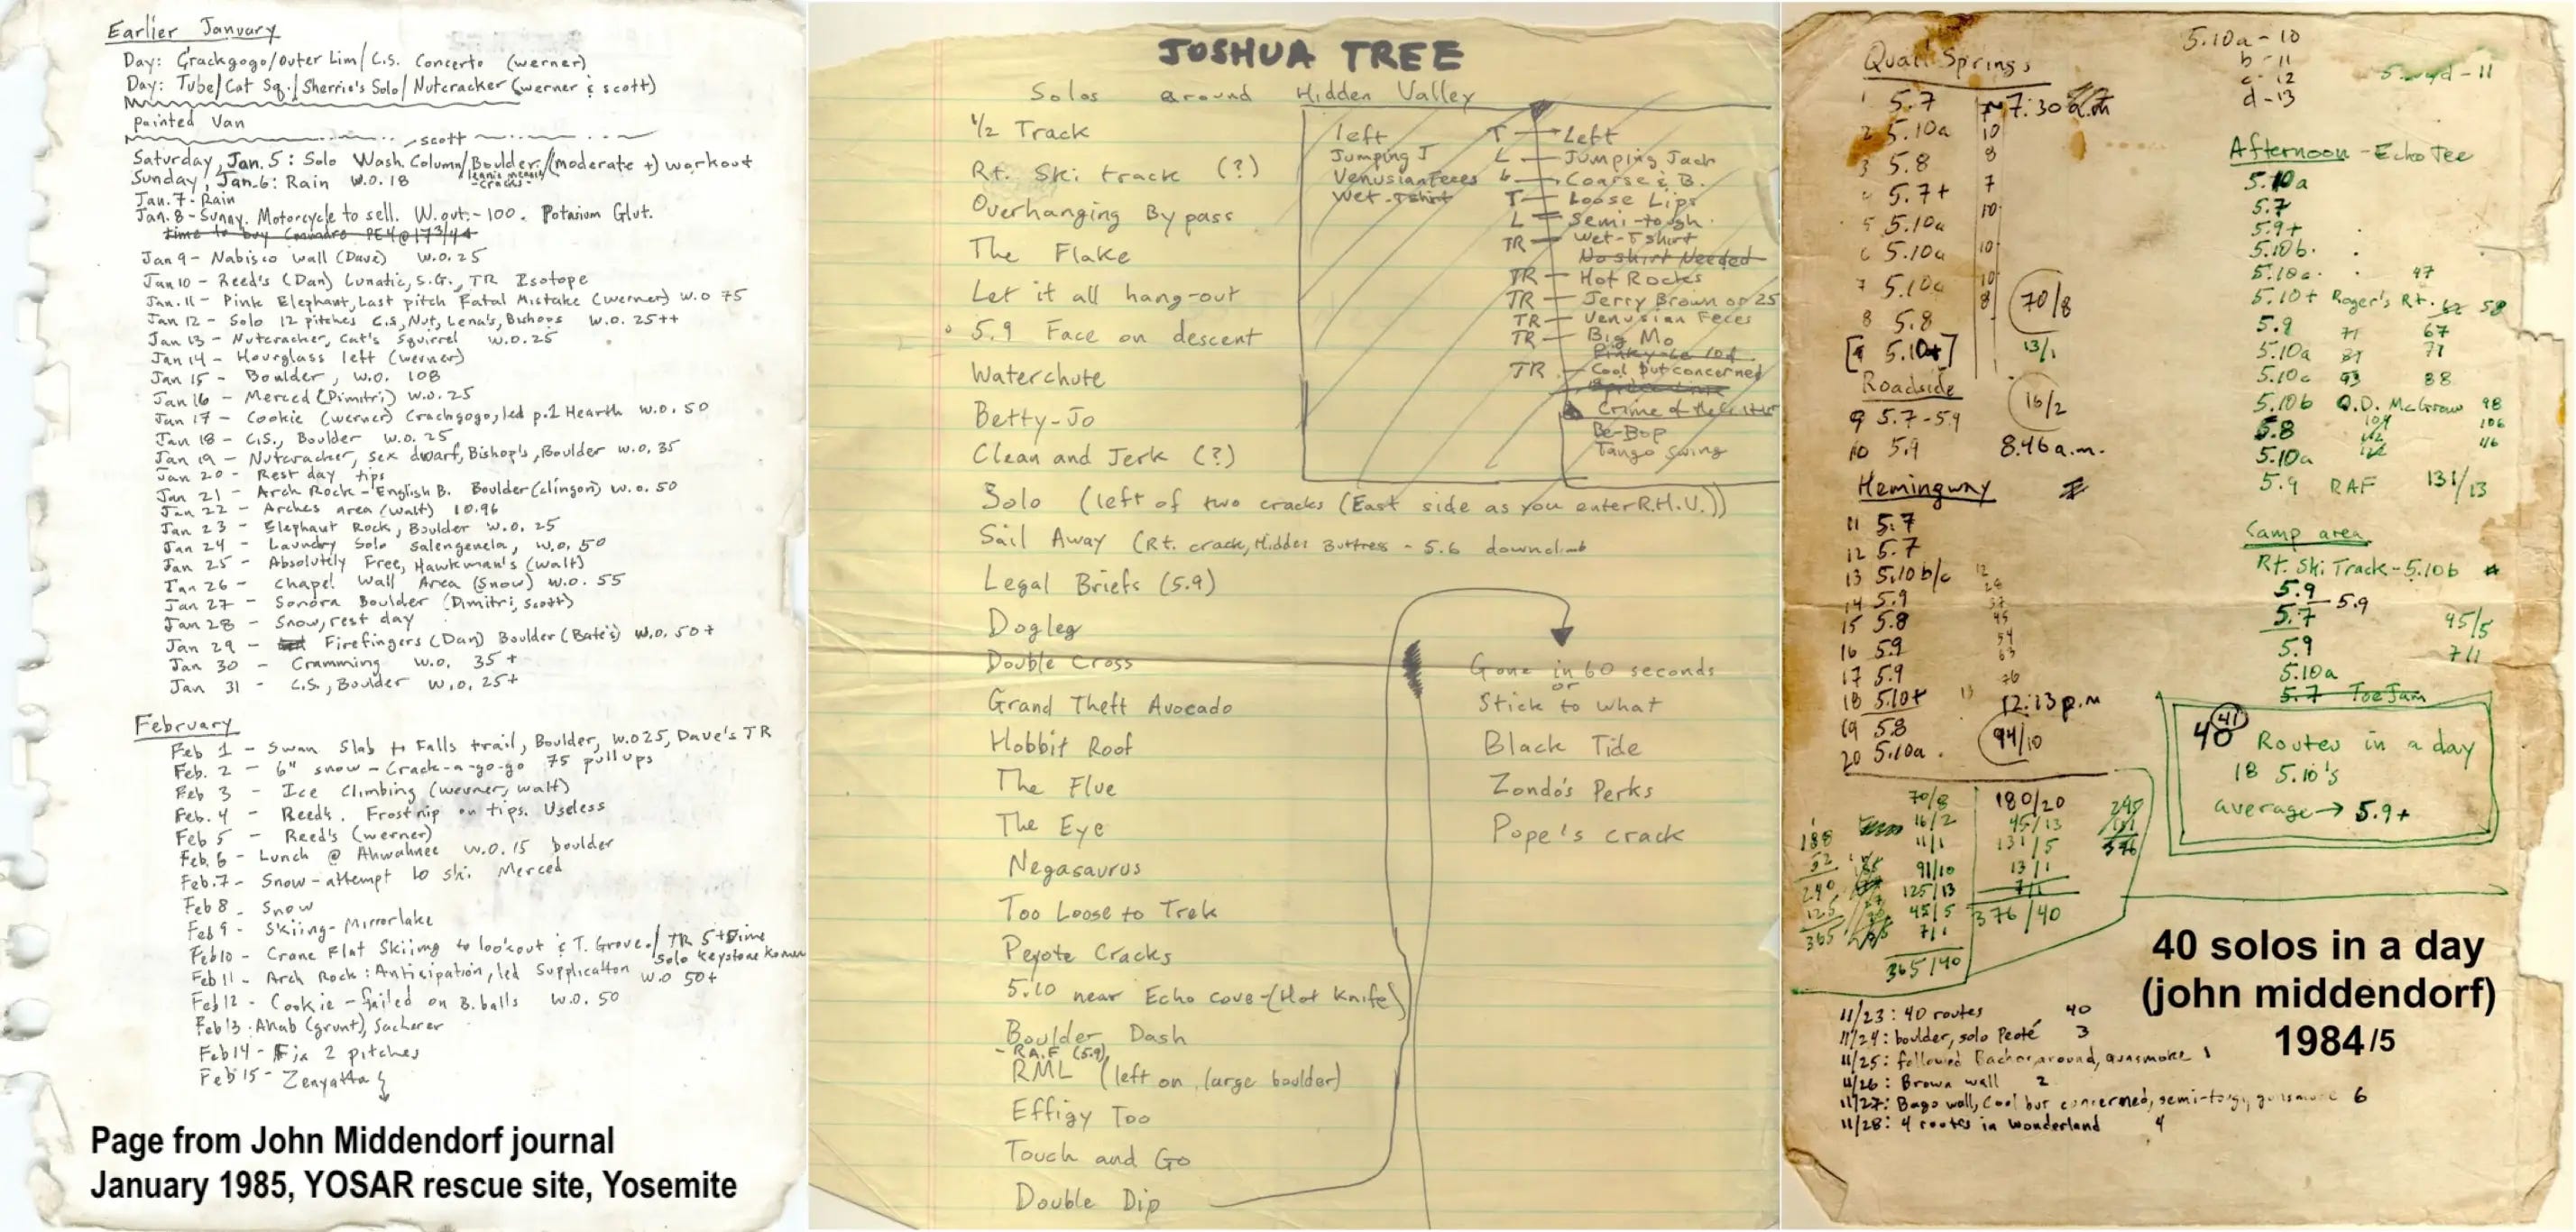 Earlier January
Day: Crackgogo/Outer Lim/C.S. Concerto (werner)
Day: Tube/Cat Sq./Sherrie's Solo/Nutcracker (werner & scott)
painted Van
scott
Saturday, Jan. 5: Solo Wash. Column/Boulder/(moderate +) workout
Sunday, Jan. 6: Rain W.O. 18
cracks
Jan. 7 - Rain
Jan. 8 - Sunny. Motorcycle to sell. W.out. - 100. Potasium Glut.
time to buy
Jan 9 - Nabisco wall (Dave) W.O. 25
Jan 10 - Reed's (Dan) Lunatic, S.G., TR Isotope
Jan. 11 - Pink Elephant, Last pitch Fatal Mistake (werner) W.O 75
Jan 12 - Solo 12 pitches C.S, Nut, Lena's, Bishops W.O. 25++
Jan 13 - Nutcracker, Cat's Squirrel W.O. 25
Jan 14 - Hourglass left (werner)
Jan 15 - Boulder, W.O. 108
Jan 16 - Merced (Dimitri) W.O. 25
Jan 17 - Cookie (werner) Crackgogo, led p.1 Hearth W.O. 50
Jan 18 - C.S., Boulder W.O. 25
Jan 19 - Nutcracker, sex dwarf, Bishop's, Boulder W.O. 35
Jan 20 - Rest day tips
Jan 21 - Arch Rock - English B. Boulder (clingon) W.O. 50
Jan 22 - Arches area (walt) 10.96
Jan 23 - Elephant Rock, Boulder W.O. 25
Jan 24 - Laundry Solo Salengenela, W.O. 50
Jan 25 - Absolutely Free, Hawkman's (walt)
Jan 26 - Chapel Wall Area (Snow) W.O. 55
Jan 27 - Sonora Boulder (Dimitri, Scott)
Jan 28 - Snow, rest day
Jan 29 - Firefingers (Dan) Boulder (Bate's) W.O. 50+
Jan 30 - Cramming W.O. 35+
Jan 31 - C.S., Boulder W.O. 25+
February
Feb 1 - Swan Slab to Falls trail, Boulder, W.O 25, Dave's TR
Feb. 2 - 6" snow - Crack-a-go-go 75 pullups
Feb 3 - Ice Climbing (werner, walt)
Feb. 4 - Reeds. Frostnip on tips. Useless
Feb 5 - Reed's (werner)
Feb. 6 - Lunch @ Ahwahnee W.O. 15 boulder
Feb. 7 - Snow - attempt to ski Merced
Feb 8 - Snow
Feb 9 - Skiing - Mirrorlake
Feb 10 - Crane Flat Skiing to lookout & T. Grove / TR 5+Dime
solo keystone korner
Feb 11 - Arch Rock: Anticipation, led Supplication W.O 50+
Feb 12 - Cookie - failed on B. balls W.O. 50
Feb 13 - Ahab (grunt), Sacherer
Feb 14 - Fix 2 pitches
Feb 15 - Zenyatta
Page from John Middendorf journal
January 1985, YOSAR rescue site, Yosemite
JOSHUA TREE
Solos around Hidden Valley
1/2 Track
Rt. Ski track (?)
Overhanging Bypass
The Flake
Let it all hang-out
5.9 Face on descent
Waterchute
Betty-Jo
Clean and Jerk (?)
left
Jumping J
Venusian Feces
Wet-Tshirt
T - Left
L - Jumping Jack
L - Coarse & B.
T - Loose Lips
L - Semi-tough
TR - Wet-Tshirt
No shirt Needed
TR - Hot Rocks
TR - Jerry Brown or 25
TR - Venusian Feces
TR - Big Mo
TR - Cool but concerned
Crime of the
Be-Bop
Tango Swing
Solo (left of two cracks (East side as you enter R.H.V.))
Sail Away (Rt. crack, Hidden Buttress - 5.6 downclimb
Legal Briefs (5.9)
Dogleg
Double Cross
Grand Theft Avocado
Hobbit Roof
The Flue
The Eye
Negasaurus
Too Loose to Trek
Peyote Cracks
5.10 near Echo cove-(Hot Knife)
Boulder Dash
- R.A.F (5.9)
RML (left on large boulder)
Effigy Too
Touch and Go
Double Dip
Gone in 60 seconds
or
Stick to what
Black Tide
Zondo's Perks
Pope's crack
Quail Springs
1 5.7 7 ~7:30 a.m
2 5.10a 10
3 5.8 8
4 5.7+ 7
5 5.10a 10
6 5.10a 10
7 5.10a 10
8 5.8 8
70/8
[9 5.10+] 13/1
Roadside
16/2
9 5.7-5.9
10 5.9 8:46 a.m.
Hemingway
11 5.7
12 5.7
13 5.10 b/c 12
14 5.9
15 5.8 45
16 5.9 54
17 5.9 63
18 5.10+ 13 12:13 p.m
19 5.8
20 5.10a
94/10
5.10a - 10
b - 11
c - 12
d - 13
Afternoon - Echo Tee
5.10a
5.7
5.9+
5.10b
5.10a 47
5.10+ Roger's Rt. 62 58
5.9 71 67
5.10a 81 77
5.10c 93 88
5.10b Q.D. McGraw 98
5.8 106
5.10a 116
5.9 RAF 131/13
Camp area
Rt. Ski Track - 5.10b
5.9
5.7 - 5.9
45/5
5.9 7/1
5.10a
5.7 Toe Jam
40 41 Routes in a day
18 5.10's
average → 5.9+
70/8
16/2
11/1
91/10
125/13
45/5
7/1
365/40
180/20
45/13
131/5
13/1
7/1
376/40
188
52
240
125
365
40 solos in a day
(john middendorf)
1984/5
11/23: 40 routes 40
11/24: boulder, solo Peoté 3
11/25: followed Bachar around, gunsmoke 1
11/26: Brown wall 2
11/27: Bago wall, Cool but concerned, semi-tough, gunsmoke 6
11/28: 4 routes in Wonderland 4